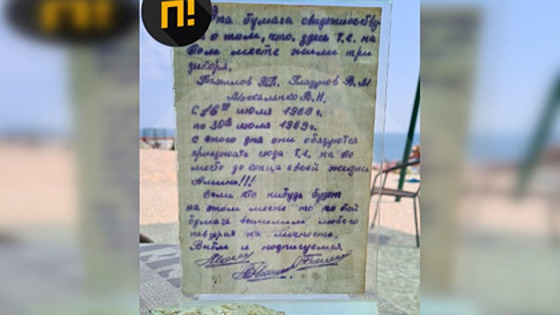 П!
Эта бумага свидетельству
о том, что, здесь т.е. на
этом месте жили три
дикоря.
Бажинов В.В. Глазунов В.М
Москаленко В.И.
С 16го июля 1969 г.
по 30го июля 1969 г.
с этого дня они обязуются
приезжать сюда т.е. на это
место до конца своей жизни
Аминь!!!
Если кто нибудь будет
на этом месте то по этой
бумаге выменим любого
невзирая на личность.
В чём и подписуемся